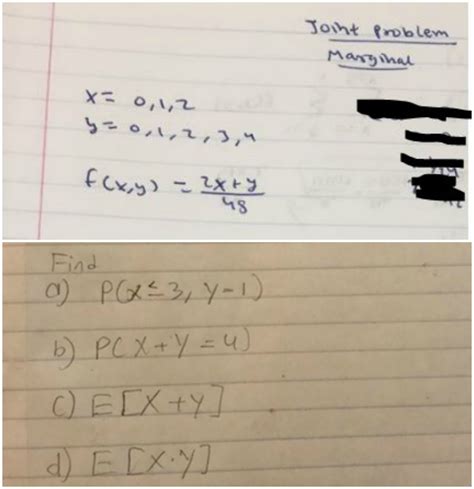 Joint Problem
Marginal
x = 0,1,2
y = 0,1,2,3,4
f(x,y) = 2x+y
48
Find
a) P(x ≤ 3, y-1)
b) P(X+Y = 4)
c) E[X+Y]
d) E[X·Y]